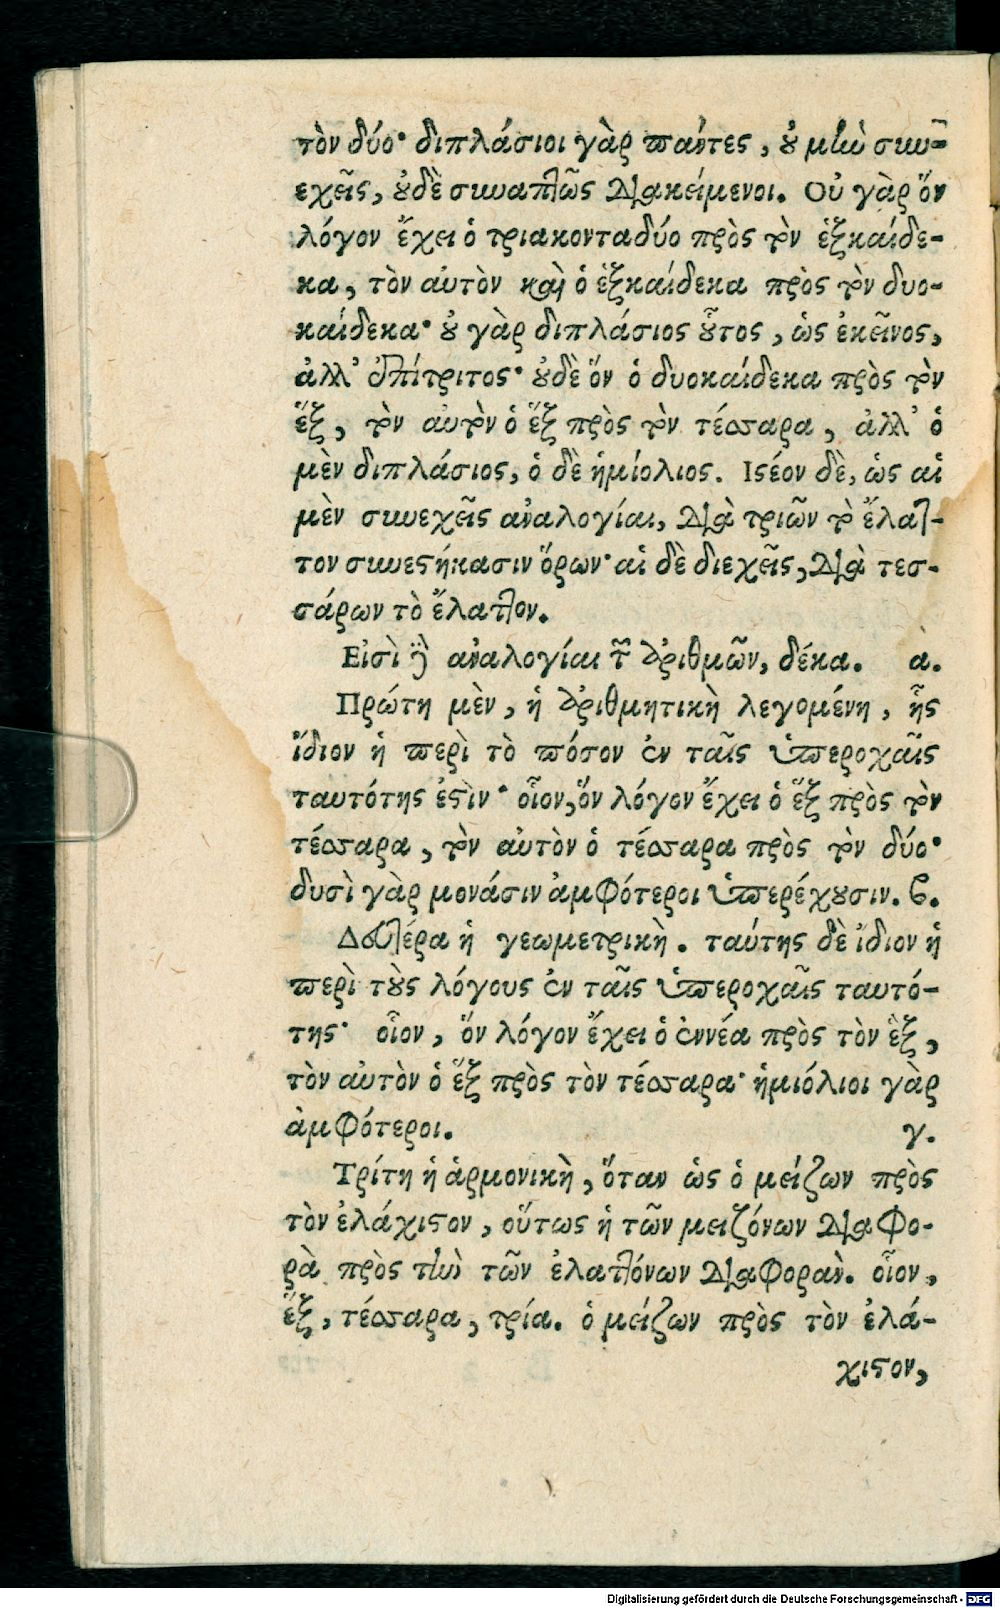 τὸν δύο· διπλάσιοι γὰρ πάντες, οὐ μὴν συν-
εχεῖς, οὐδὲ συναπτῶς διακείμενοι. Οὐ γὰρ ὅν
λόγον ἔχει ὁ τριακονταδύο πρὸς τὸν ἑξκαίδε-
κα, τὸν αὐτὸν καὶ ὁ ἑξκαίδεκα πρὸς τὸν δυο-
καίδεκα· οὐ γὰρ διπλάσιος οὗτος, ὡς ἐκεῖνος,
ἀλλ' ἐπίτριτος· οὐδὲ ὅν ὁ δυοκαίδεκα πρὸς τὸν
ἕξ, τὸν αὐτὸν ὁ ἕξ πρὸς τὸν τέσσαρα, ἀλλ' ὁ
μὲν διπλάσιος, ὁ δὲ ἡμίολιος. Ιστέον δὲ, ὡς αἱ
μὲν συνεχεῖς ἀναλογίαι, διὰ τριῶν τὸ ἔλατ-
τον συνεστήκασιν ὅρων· αἱ δὲ διεχεῖς, διὰ τεσ-
σάρων τὸ ἔλαττον.
Εἰσὶ δὲ ἀναλογίαι τῶν ἀριθμῶν, δέκα. ά.
Πρώτη μὲν, ἡ ἀριθμητικὴ λεγομένη, ἧς
ἴδιον ἡ περὶ τὸ πόσον ἐν ταῖς ὑπεροχαῖς
ταυτότης ἐστὶν· οἷον, ὅν λόγον ἔχει ὁ ἕξ πρὸς τὸν
τέσσαρα, τὸν αὐτὸν ὁ τέσσαρα πρὸς τὸν δύο·
δυσὶ γὰρ μονάσιν ἀμφότεροι ὑπερέχουσιν. β.
Δευτέρα ἡ γεωμετρικὴ. ταύτης δὲ ἴδιον ἡ
περὶ τοὺς λόγους ἐν ταῖς ὑπεροχαῖς ταυτό-
της· οἷον, ὅν λόγον ἔχει ὁ ἐννέα πρὸς τὸν ἓξ,
τὸν αὐτὸν ὁ ἕξ πρὸς τὸν τέσσαρα· ἡμιόλιοι γὰρ
ἀμφότεροι. γ.
Τρίτη ἡ ἁρμονικὴ, ὅταν ὡς ὁ μείζων πρὸς
τὸν ἐλάχιστον, οὕτως ἡ τῶν μειζόνων διαφο-
ρὰ πρὸς τὴν τῶν ἐλαττόνων διαφορὰν. οἷον,
ἕξ, τέσσαρα, τρία. ὁ μείζων πρὸς τὸν ἐλά-
χιστον,
Digitalisierung gefördert durch die Deutsche Forschungsgemeinschaft - DFG